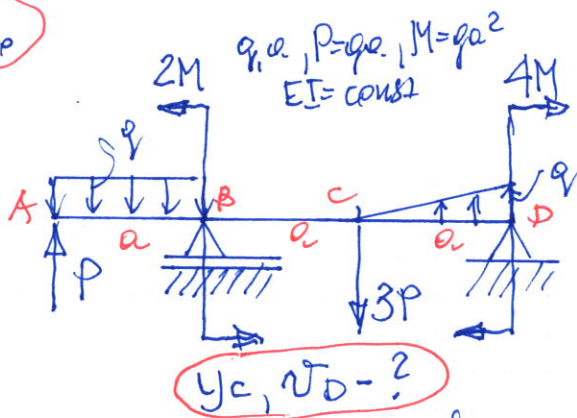 q, a, P=qa, M=qa²
EI=const
2M
4M
q
q
A
B
C
D
a
a
a
P
3P
yc, υD - ?